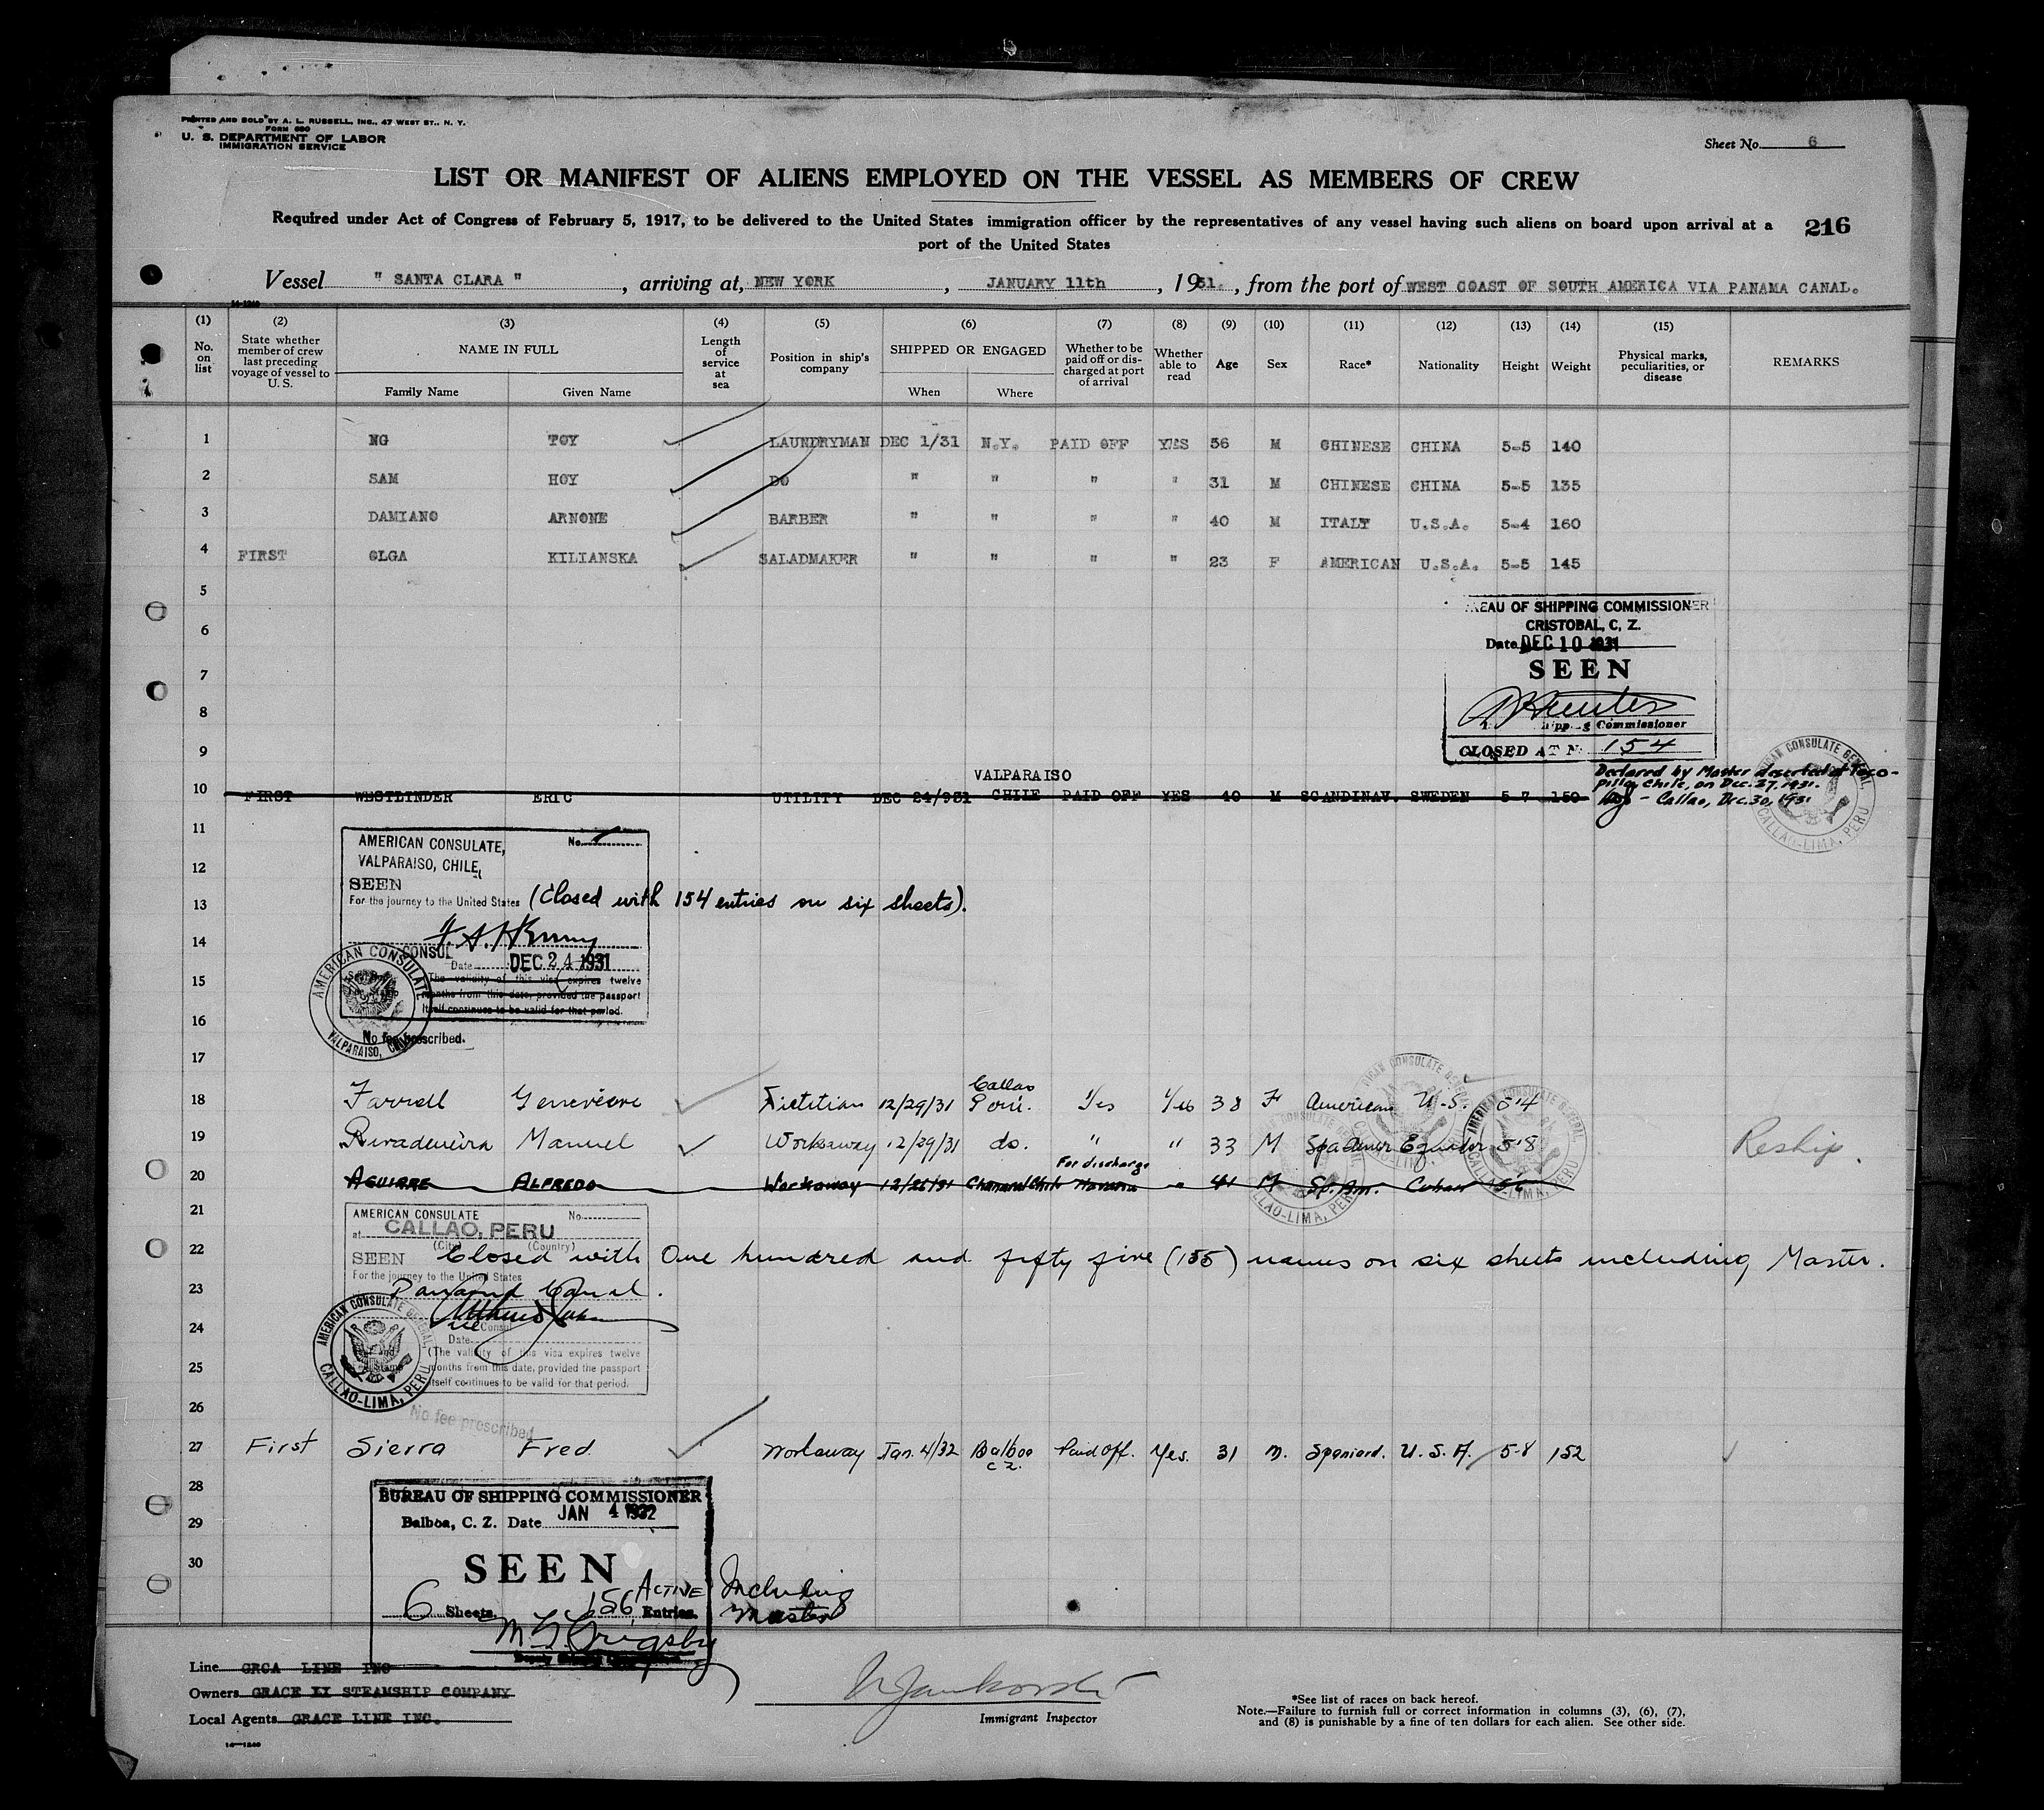 PRINTED AND SOLD BY A. L. RUSSELL, INC., 47 WEST ST., N. Y.
FORM 680
U. S. DEPARTMENT OF LABOR
IMMIGRATION SERVICE
Sheet No. 6
LIST OR MANIFEST OF ALIENS EMPLOYED ON THE VESSEL AS MEMBERS OF CREW
Required under Act of Congress of February 5, 1917, to be delivered to the United States immigration officer by the representatives of any vessel having such aliens on board upon arrival at a
port of the United States
216
Vessel " SANTA CLARA " , arriving at, NEW YORK , JANUARY 11th , 1931. , from the port of WEST COAST OF SOUTH AMERICA VIA PANAMA CANAL.
14-1240
(1) (2) (3) (4) (5) (6) (7) (8) (9) (10) (11) (12) (13) (14) (15)
No. on list State whether member of crew last preceding voyage of vessel to U. S. NAME IN FULL Length of service at sea Position in ship's company SHIPPED OR ENGAGED Whether to be paid off or discharged at port of arrival Whether able to read Age Sex Race* Nationality Height Weight Physical marks, peculiarities, or disease REMARKS
Family Name Given Name When Where
1 NG TOY LAUNDRYMAN DEC 1/31 N.Y. PAID OFF YES 56 M CHINESE CHINA 5-5 140
2 SAM HOY DO " " " " 31 M CHINESE CHINA 5-5 135
3 DAMIANO ARNONE BARBER " " " " 40 M ITALY U.S.A. 5-4 160
4 FIRST OLGA KILIANSKA SALADMAKER " " " " 23 F AMERICAN U.S.A. 5-5 145
5
6
7
8
9
BUREAU OF SHIPPING COMMISSIONER
CRISTOBAL, C. Z.
Date DEC 10 1931
SEEN
Shipping Commissioner
CLOSED AT No 154
VALPARAISO
10 FIRST WESTLINDER ERIC UTILITY DEC 24/931 CHILE PAID OFF YES 40 M SCANDINAV. SWEDEN 5-7 150
Declared by Master deserted at Toco-
pilla, Chile, on Dec. 27, 1931.
- Callao, Dec. 30, 1931
AMERICAN CONSULATE GENERAL
CALLAO-LIMA, PERU
11
12
13
14
15
16
17
AMERICAN CONSULATE, No.
VALPARAISO, CHILE,
SEEN
For the journey to the United States (Closed with 154 entries on six sheets).
CONSUL
Date DEC 24 1931
(The validity of this visa expires twelve
months from this date, provided the passport
itself continues to be valid for that period.
AMERICAN CONSULATE
VALPARAISO, CHILE
No fee prescribed.
18 Farrell Genevieve Dietitian 12/29/31 Callao Peru. Yes Yes 38 F American U.S. 5'4
19 Rivadeneira Manuel Workaway 12/29/31 do. " " 33 M Spa Amer Ecuador 5'8 Reship.
For discharge
20 AGUIRRE ALFREDO Workaway 12/26/31 Chanaral Chile Havana " 41 M Sp. Am. Cuban 5'6
21
22
23
24
25
26
AMERICAN CONSULATE No.
at CALLAO, PERU
(City) (Country)
SEEN Closed with One hundred and fifty five (155) names on six sheets including Master.
For the journey to the United States
Panama Canal.
Vice Consul
Date
(The validity of this visa expires twelve
months from this date, provided the passport
itself continues to be valid for that period.
AMERICAN CONSULATE GENERAL
CALLAO-LIMA, PERU
No fee prescribed
27 First Sierra Fred Workaway Jan. 4/32 Balboa C Z. Paid Off. Yes. 31 M. Spaniard. U. S. A. 5-8 152
28
29
30
BUREAU OF SHIPPING COMMISSIONER
Balboa, C. Z. Date JAN 4 1932
SEEN
6 Sheets. 156 ACTIVE Entries. Including Master
M Grigsby
Line GRCA LINE INC
Owners GRACE XX STEAMSHIP COMPANY
Local Agents GRACE LINE INC.
14-1240
Immigrant Inspector
*See list of races on back hereof.
Note.—Failure to furnish full or correct information in columns (3), (6), (7),
and (8) is punishable by a fine of ten dollars for each alien. See other side.